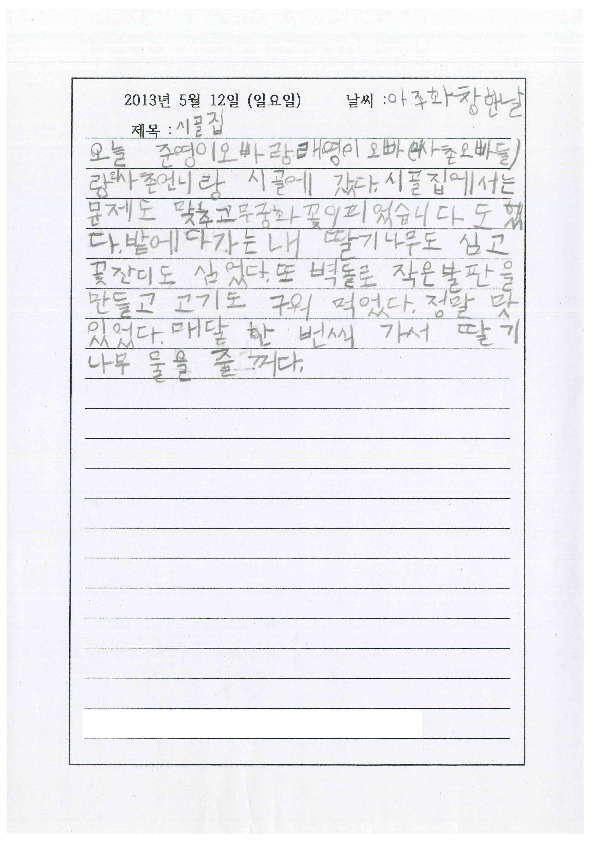 2013년 5월 12일 (일요일) 날씨 : 아주화창한날
제목 : 시골집
오늘 준영이오빠랑태영이오빠(사촌오빠들)
랑사촌언니랑 시골에 갔다.시골집에서는
문제도 맞추고무궁화꽃이피었습니다도 했
다.밭에다가는 내 딸기나무도 심고
꽃잔디도 심었다.또 벽돌로 작은불판을
만들고 고기도 구워 먹었다.정말 맛
있었다.매달 한 번씩 가서 딸기
나무 물을 줄 꺼다.